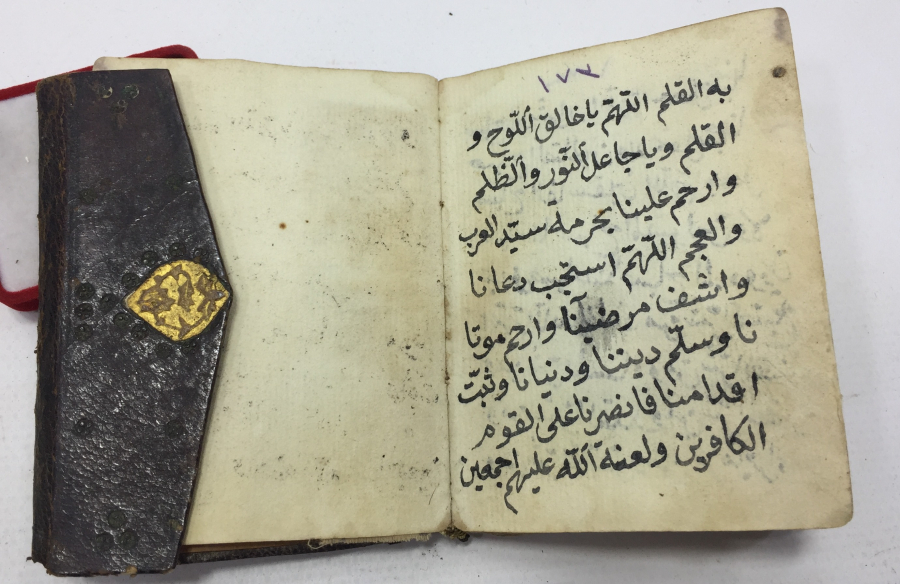 ١٧٣
به القلم اللّهمّ يا خالق اللّوح و
القلم ويا جاعل النّور والظّلم
وارحم علينا بحرمة سيّد العرب
والعجم اللّهمّ استجب دعانا
واشف مرضينآ وارحم موتا
نا وسلّم ديننا ودنيانا وثبّت
اقدامنا فانصرنا على القوم
الكافرين ولعنة اللّه عليهم اجمعين